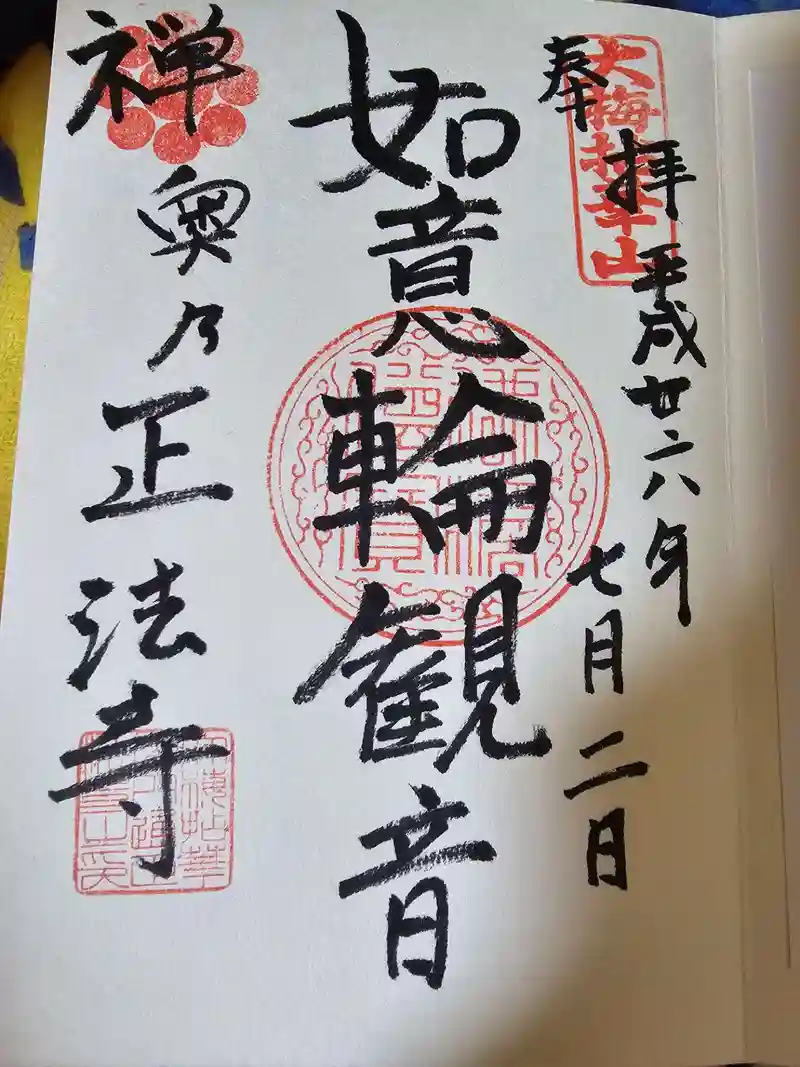 奉拝
平成廿六年
七月二日
大梅拈華山
如意輪観音
禅
奥乃正法寺